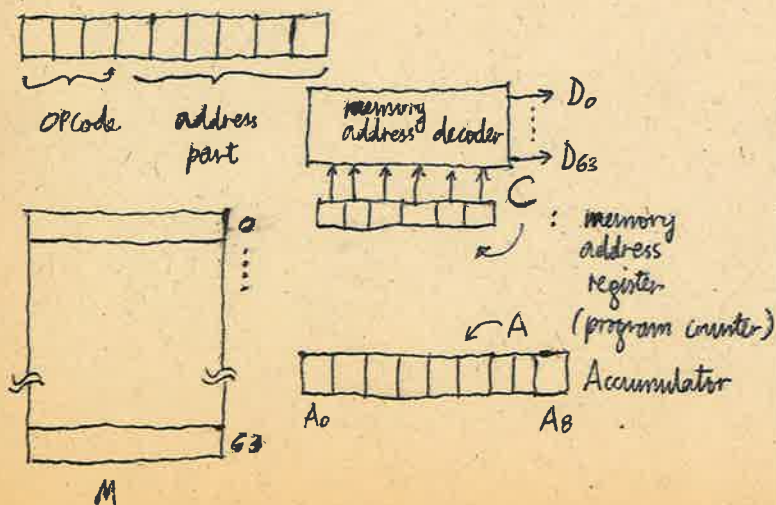 OPCode
address
part
memory
address decoder
D0
D63
C
: memory
address
register
(program counter)
0
63
M
A
Accumulator
A0
A8